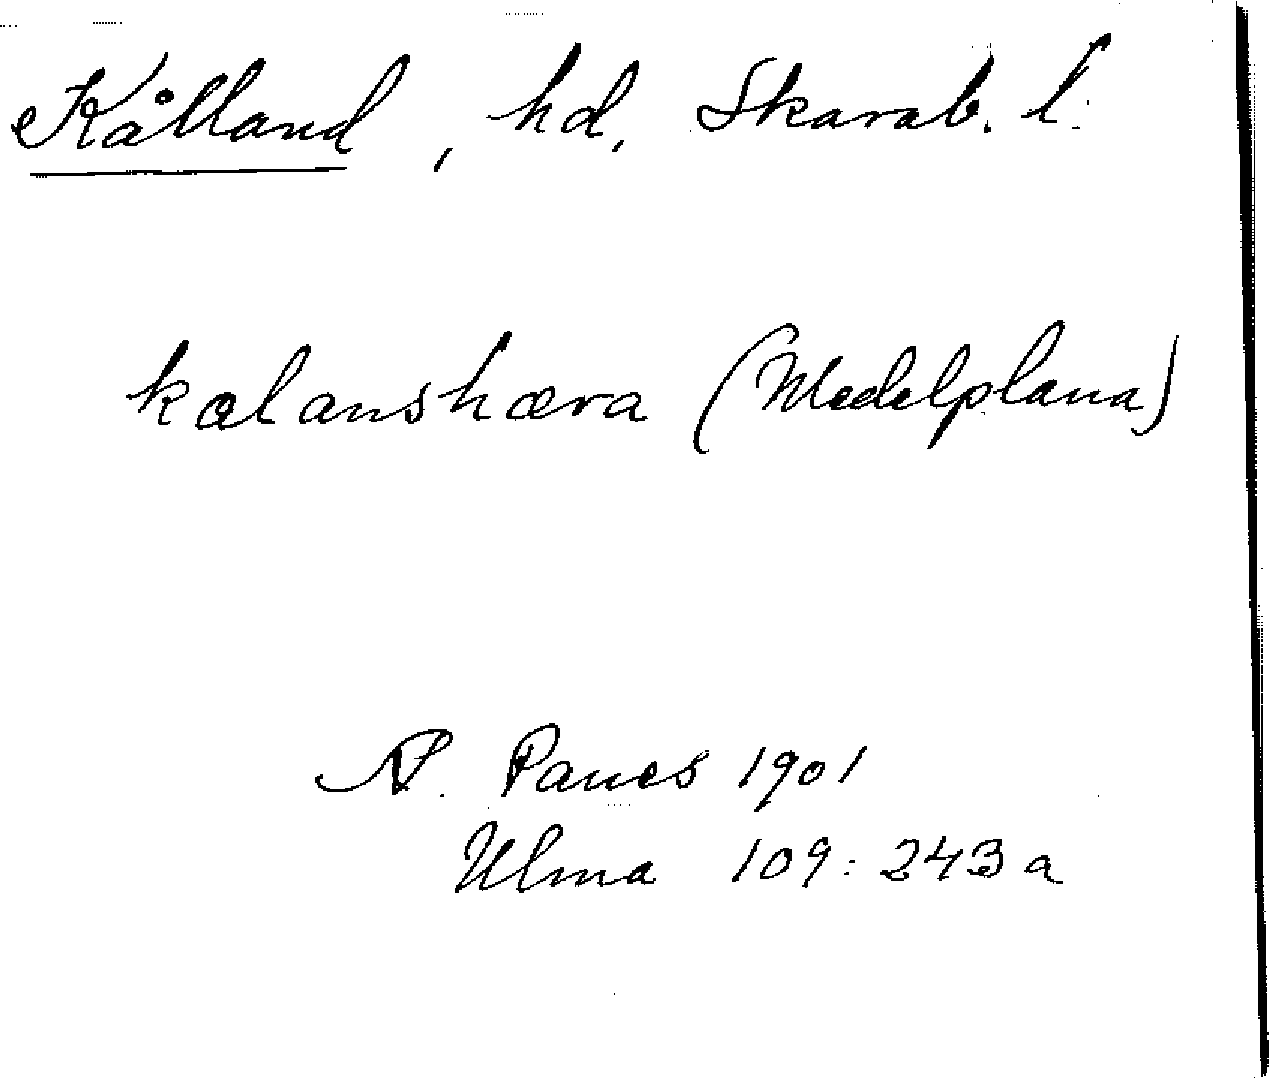 Kålland, hd, Skarab. l.
kalanshæra (Medelplana)
1901
Ulma 109:243a